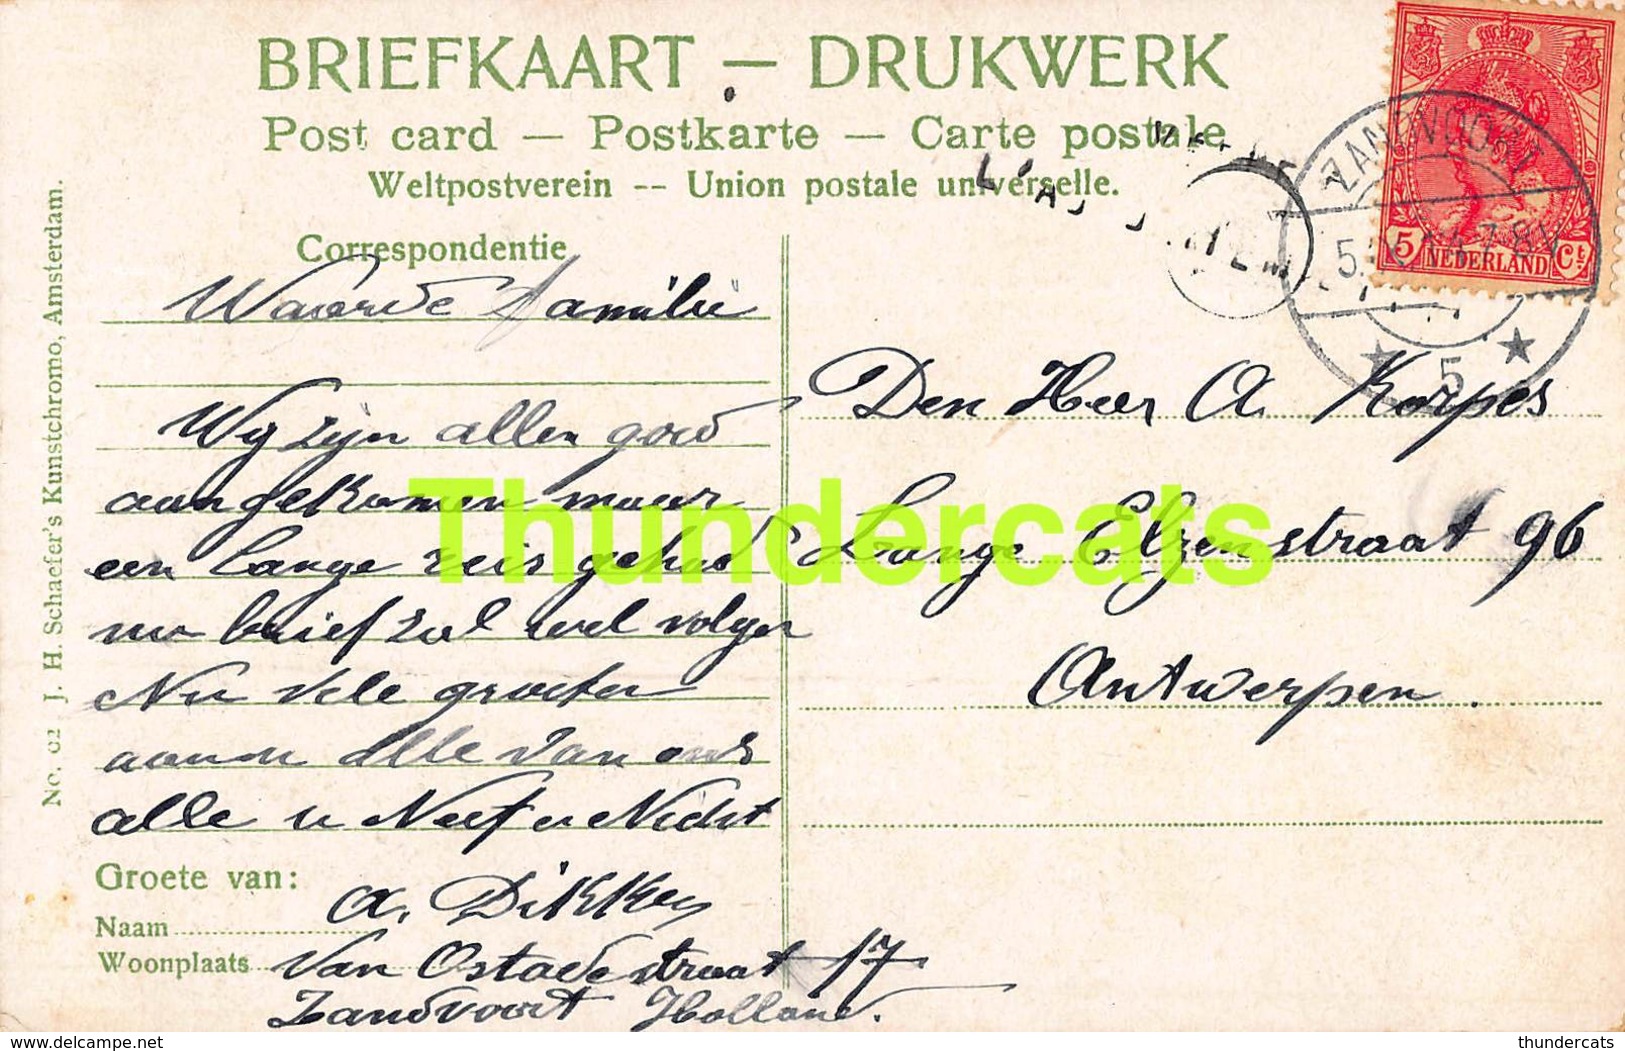 BRIEFKAART — DRUKWERK
Post card — Postkarte — Carte postale
Weltpostverein -- Union postale universelle.
Correspondentie
Waarde Familie
Wij zijn allen goed
aangekomen maar
een lange reis gehad
nu brief zal wel volgen
Nu vele groeten
aan alle van ons
alle u Neef en Nicht
Groete van:
A. Dikker
Naam
Woonplaats Van Ostadestraat 17
Zandvoort Holland.
Den Heer A. Korpes
Lange Elzenstraat 96
Antwerpen.
5 NEDERLAND Ct
ZANDVOORT
5
No. 62 J. H. Schaefer's Kunstchromo, Amsterdam.
Thundercats
www.delcampe.net
thundercats